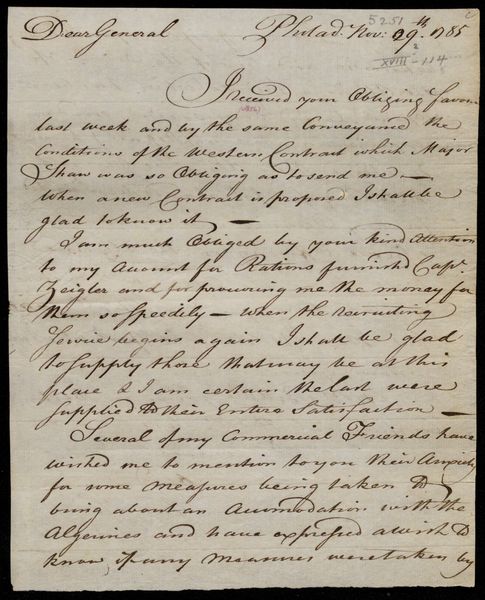 Dear General
Philad. Nov: 29th. 1785
5251
XVIII - 114
I received your Obliging favor
last week and by the same Conveyance the
Conditions of the Western Contract which Major
Shaw was so Obliging as to send me —
When a new Contract is proposed I shall be
glad to know it —
I am much Obliged by your kind Attention
to my Account for Rations furnished Capt.
Zeigler and for procuring me the money for
them so speedily — when the recruiting
Service begins again I shall be glad
to supply those that may be at this
place & I am certain the last were
supplied to their Entere Satisfaction —
Several of my Commercial Friends have
wished me to mention to you their Anxiety
for some measures being taken to
bring about an Acomodation with the
Algerines and have expressed a wish to
know if any measures were taken by